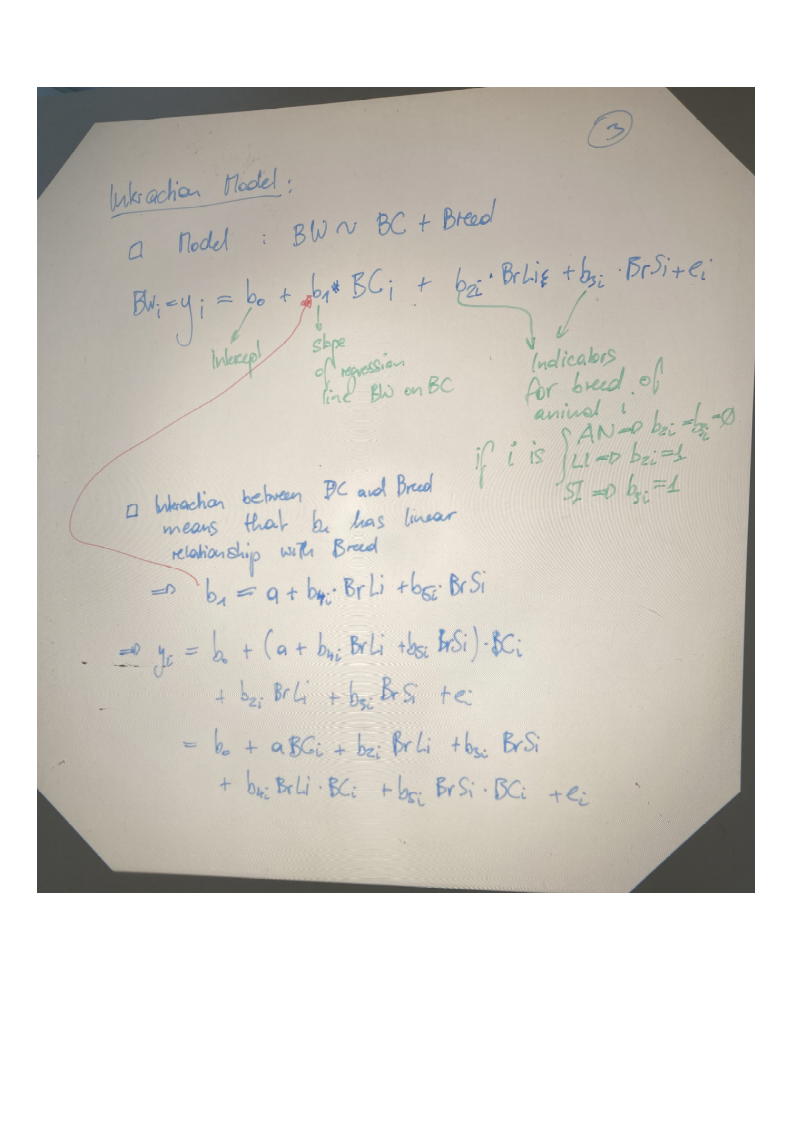 3
Interaction Model:
□ Model : BW ~ BC + Breed
BWi = yi = b0 + b1* BCi + b2i · BrLi + b3i · BrSi + ei
Intercept
slope
of regression
line BW on BC
Indicators
for breed of
animal i
if i is { AN => b2i = b3i = 0
LI => b2i = 1
SI => b3i = 1
□ Interaction between BC and Breed
means that b1 has linear
relationship with Breed
=> b1 = a + b4i · BrLi + b5i · BrSi
=> yi = b0 + (a + b4i BrLi + b5i BrSi) · BCi
+ b2i BrLi + b3i BrSi + ei
= b0 + aBCi + b2i BrLi + b3i BrSi
+ b4i BrLi · BCi + b5i BrSi · BCi + ei